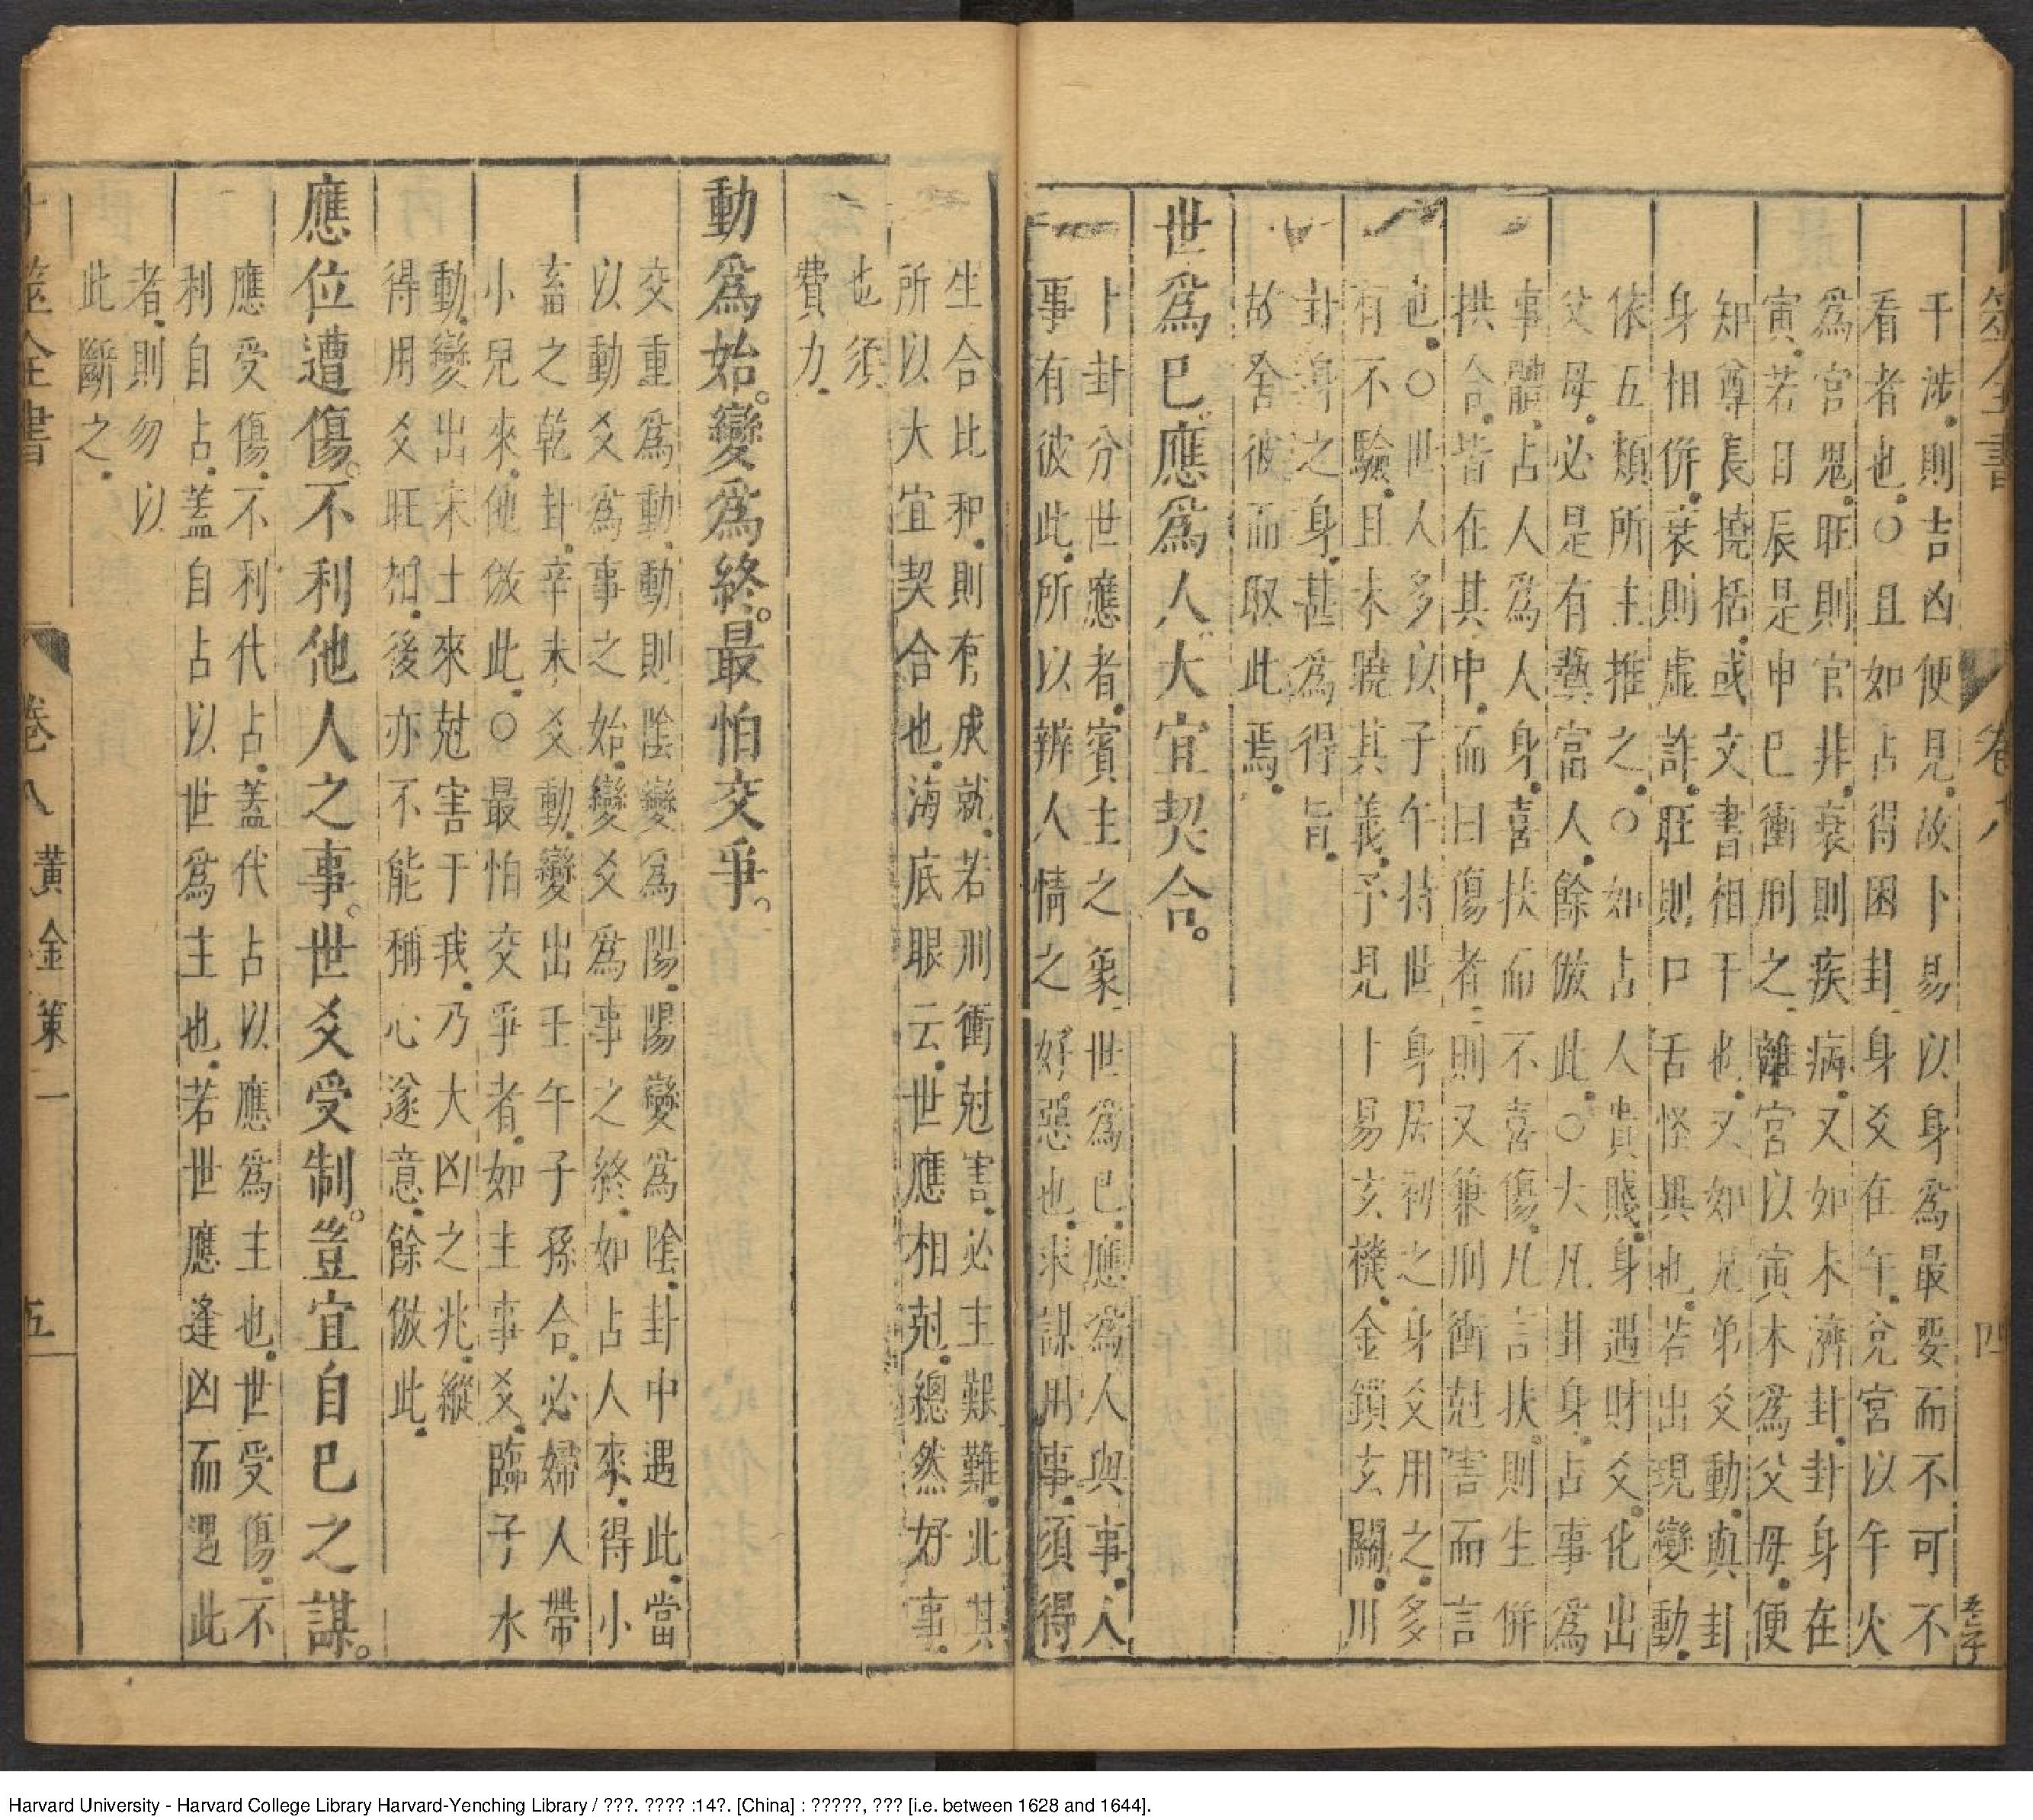 卜筮全書 卷八 四
干涉則吉凶便見故卜易以身為最要而不可不
看者也○且如占得困卦身爻在午兌宮以午火
為官鬼旺則官非衰則疾病又如未濟卦卦身在
寅若日辰是申巳衝刑之離宮以寅木為父母便
知尊長撓括或文書相干也又如兄弟爻動與卦
身相併衰則虛詐旺則口舌怪異也若出現變動
依五類所主推之○如占人貴賤身遇財爻化出
父母必是有藝富人餘倣此○大凡卦身占事為
事體占人為人身喜扶而不喜傷凡言扶則生併
拱合皆在其中而曰傷者則又兼刑衝尅害而言
也○世人多以子午持世身居初之身爻用之多
有不驗且未曉其義予見卜易玄機金鎖玄關川
卦身之身甚為得旨
故舍彼而取此焉
世爲巳應爲人大宜契合。
卜卦分世應者賓主之象世為巳應為人與事人
事有彼此所以辨人情之好惡也求謀用事須得
生合比和則有成就若刑衝尅害必主艱難此其
所以大宜契合也海底眼云世應相尅總然好事
也須
費力
動爲始。變爲終。最怕交爭。
交重為動動則陰變為陽陽變為陰卦中遇此當
以動爻為事之始變爻為事之終如占人來得小
畜之乾卦辛未爻動變出壬午子孫合必婦人帶
小兒來他倣此○最怕交爭者如主事爻臨子水
動變出未土來尅害于我乃大凶之兆縱
得用爻旺相後亦不能稱心遂意餘倣此
應位遭傷。不利他人之事。世爻受制。豈宜自巳之謀。
應受傷不利代占蓋代占以應為主也世受傷不
利自占蓋自占以世為主也若世應逢凶而遇此
者則勿以
此斷之
卜筮全書 卷八 黃金策一 五
Harvard University - Harvard College Library Harvard-Yenching Library / ???. ???? :14?. [China] : ?????, ??? [i.e. between 1628 and 1644].